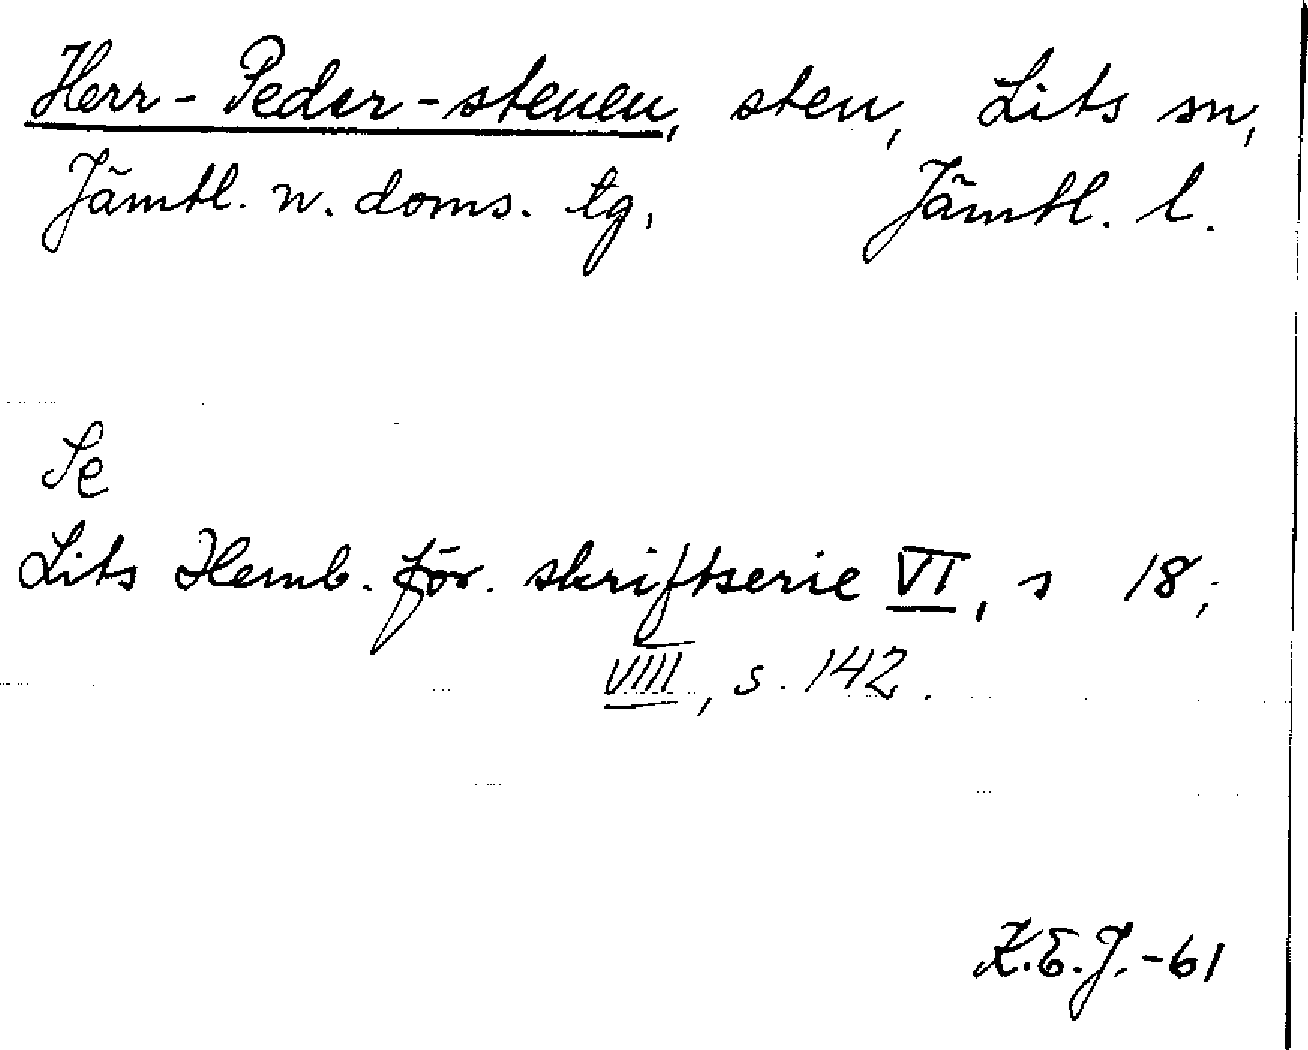 Herr-Peder-stenen, sten, Lits sn,
Jämtl. n. doms. tg, Jämtl. l.
Se
Lits Hemb. för. skriftserie VI, s 18;
VIII, s. 142.
K.E.J.-61